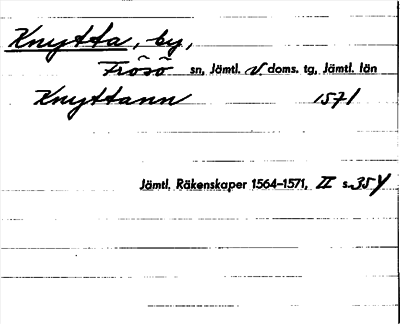 Knytta, by,
Frösö sn, Jämtl. v. doms. tg, Jämtl. län
Knyttann 1571
Jämtl. Räkenskaper 1564–1571, II s.